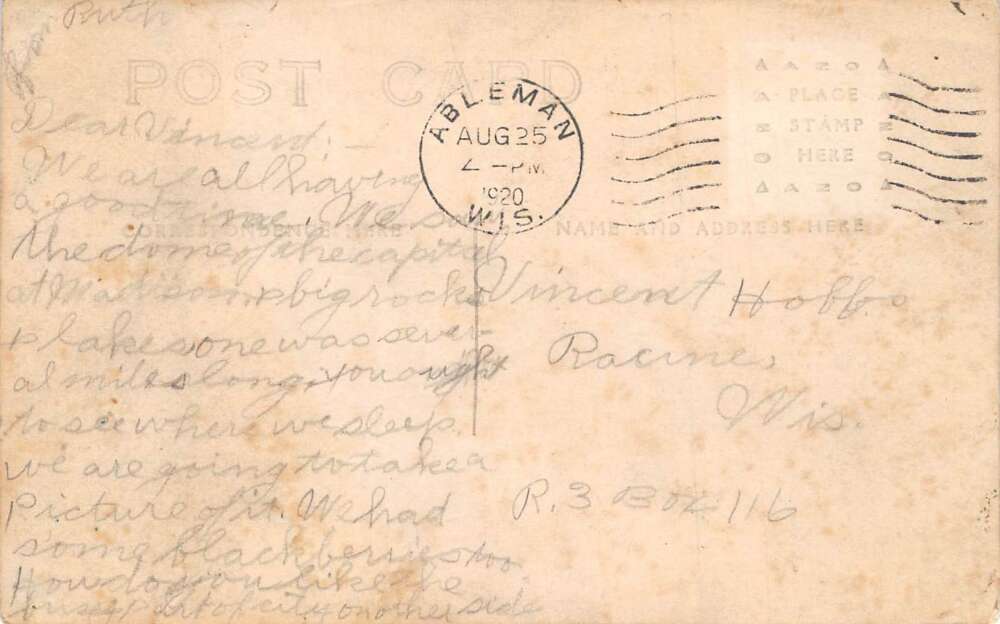 From Ruth
POST CARD
ABLEMAN
AUG 25
2 - PM
1920
WIS.
AZO
PLACE
STAMP
HERE
AZO
CORRESPONDENCE HERE
NAME AND ADDRESS HERE
Dear Vincent: -
We are all having
a good time. We saw
the dome of the capital
at Madison, & big rocks
& lakes one was sever-
al miles long, you ought
to see where we sleep.
we are going to take a
picture of it. We had
some blackberries too.
How do you like the
busy part of city on other side
Vincent Hobbs
Racine,
Wis.
R. 3 Box 116